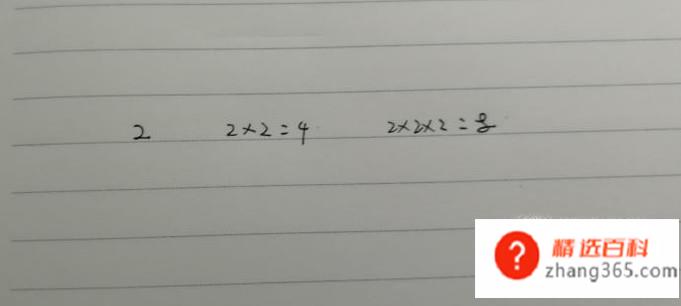 2 2×2=4 2×2×2=8
?
精选百科
zhang365.com